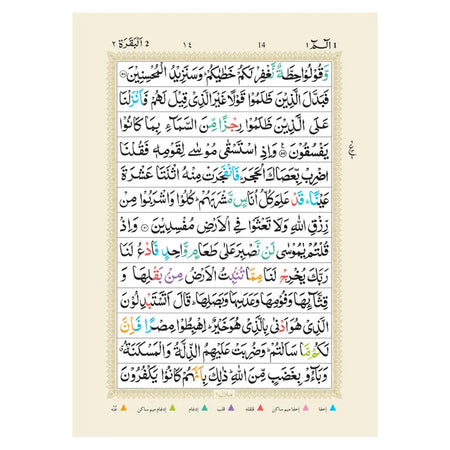 1 الٓمّٓ ١
14
١٤
2 اَلْبَقَرَة ٢
وَّقُوْلُوْا حِطَّةٌ نَّغْفِرْ لَكُمْ خَطٰيٰكُمْ وَسَنَزِيْدُ الْمُحْسِنِيْنَ ۝٥٨
فَبَدَّلَ الَّذِيْنَ ظَلَمُوْا قَوْلًا غَيْرَ الَّذِيْ قِيْلَ لَهُمْ فَاَنْزَلْنَا
عَلَى الَّذِيْنَ ظَلَمُوْا رِجْزًا مِّنَ السَّمَآءِ بِمَا كَانُوْا
يَفْسُقُوْنَ ۝٥٩ وَاِذِ اسْتَسْقٰى مُوْسٰى لِقَوْمِهٖ فَقُلْنَا
اضْرِبْ بِّعَصَاكَ الْحَجَرَ ؕ فَانْفَجَرَتْ مِنْهُ اثْنَتَا عَشْرَةَ
عَيْنًا ؕ قَدْ عَلِمَ كُلُّ اُنَاسٍ مَّشْرَبَهُمْ ؕ كُلُوْا وَاشْرَبُوْا مِنْ
رِّزْقِ اللّٰهِ وَلَا تَعْثَوْا فِى الْاَرْضِ مُفْسِدِيْنَ ۝٦٠ وَاِذْ
قُلْتُمْ يٰمُوْسٰى لَنْ نَّصْبِرَ عَلٰى طَعَامٍ وَّاحِدٍ فَادْعُ لَنَا
رَبَّكَ يُخْرِجْ لَنَا مِمَّا تُنْۢبِتُ الْاَرْضُ مِنْۢ بَقْلِهَا وَ
قِثَّآئِهَا وَفُوْمِهَا وَعَدَسِهَا وَبَصَلِهَا ؕ قَالَ اَتَسْتَبْدِلُوْنَ
الَّذِيْ هُوَ اَدْنٰى بِالَّذِيْ هُوَ خَيْرٌ ؕ اِهْبِطُوْا مِصْرًا فَاِنَّ
لَكُمْ مَّا سَاَلْتُمْ ؕ وَضُرِبَتْ عَلَيْهِمُ الذِّلَّةُ وَالْمَسْكَنَةُ ۗ
وَبَآءُوْ بِغَضَبٍ مِّنَ اللّٰهِ ؕ ذٰلِكَ بِاَنَّهُمْ كَانُوْا يَكْفُرُوْنَ
منزل ١
اخفا اخفا میم ساکن قلقلہ قلب ادغام ادغام میم ساکن غنّہ